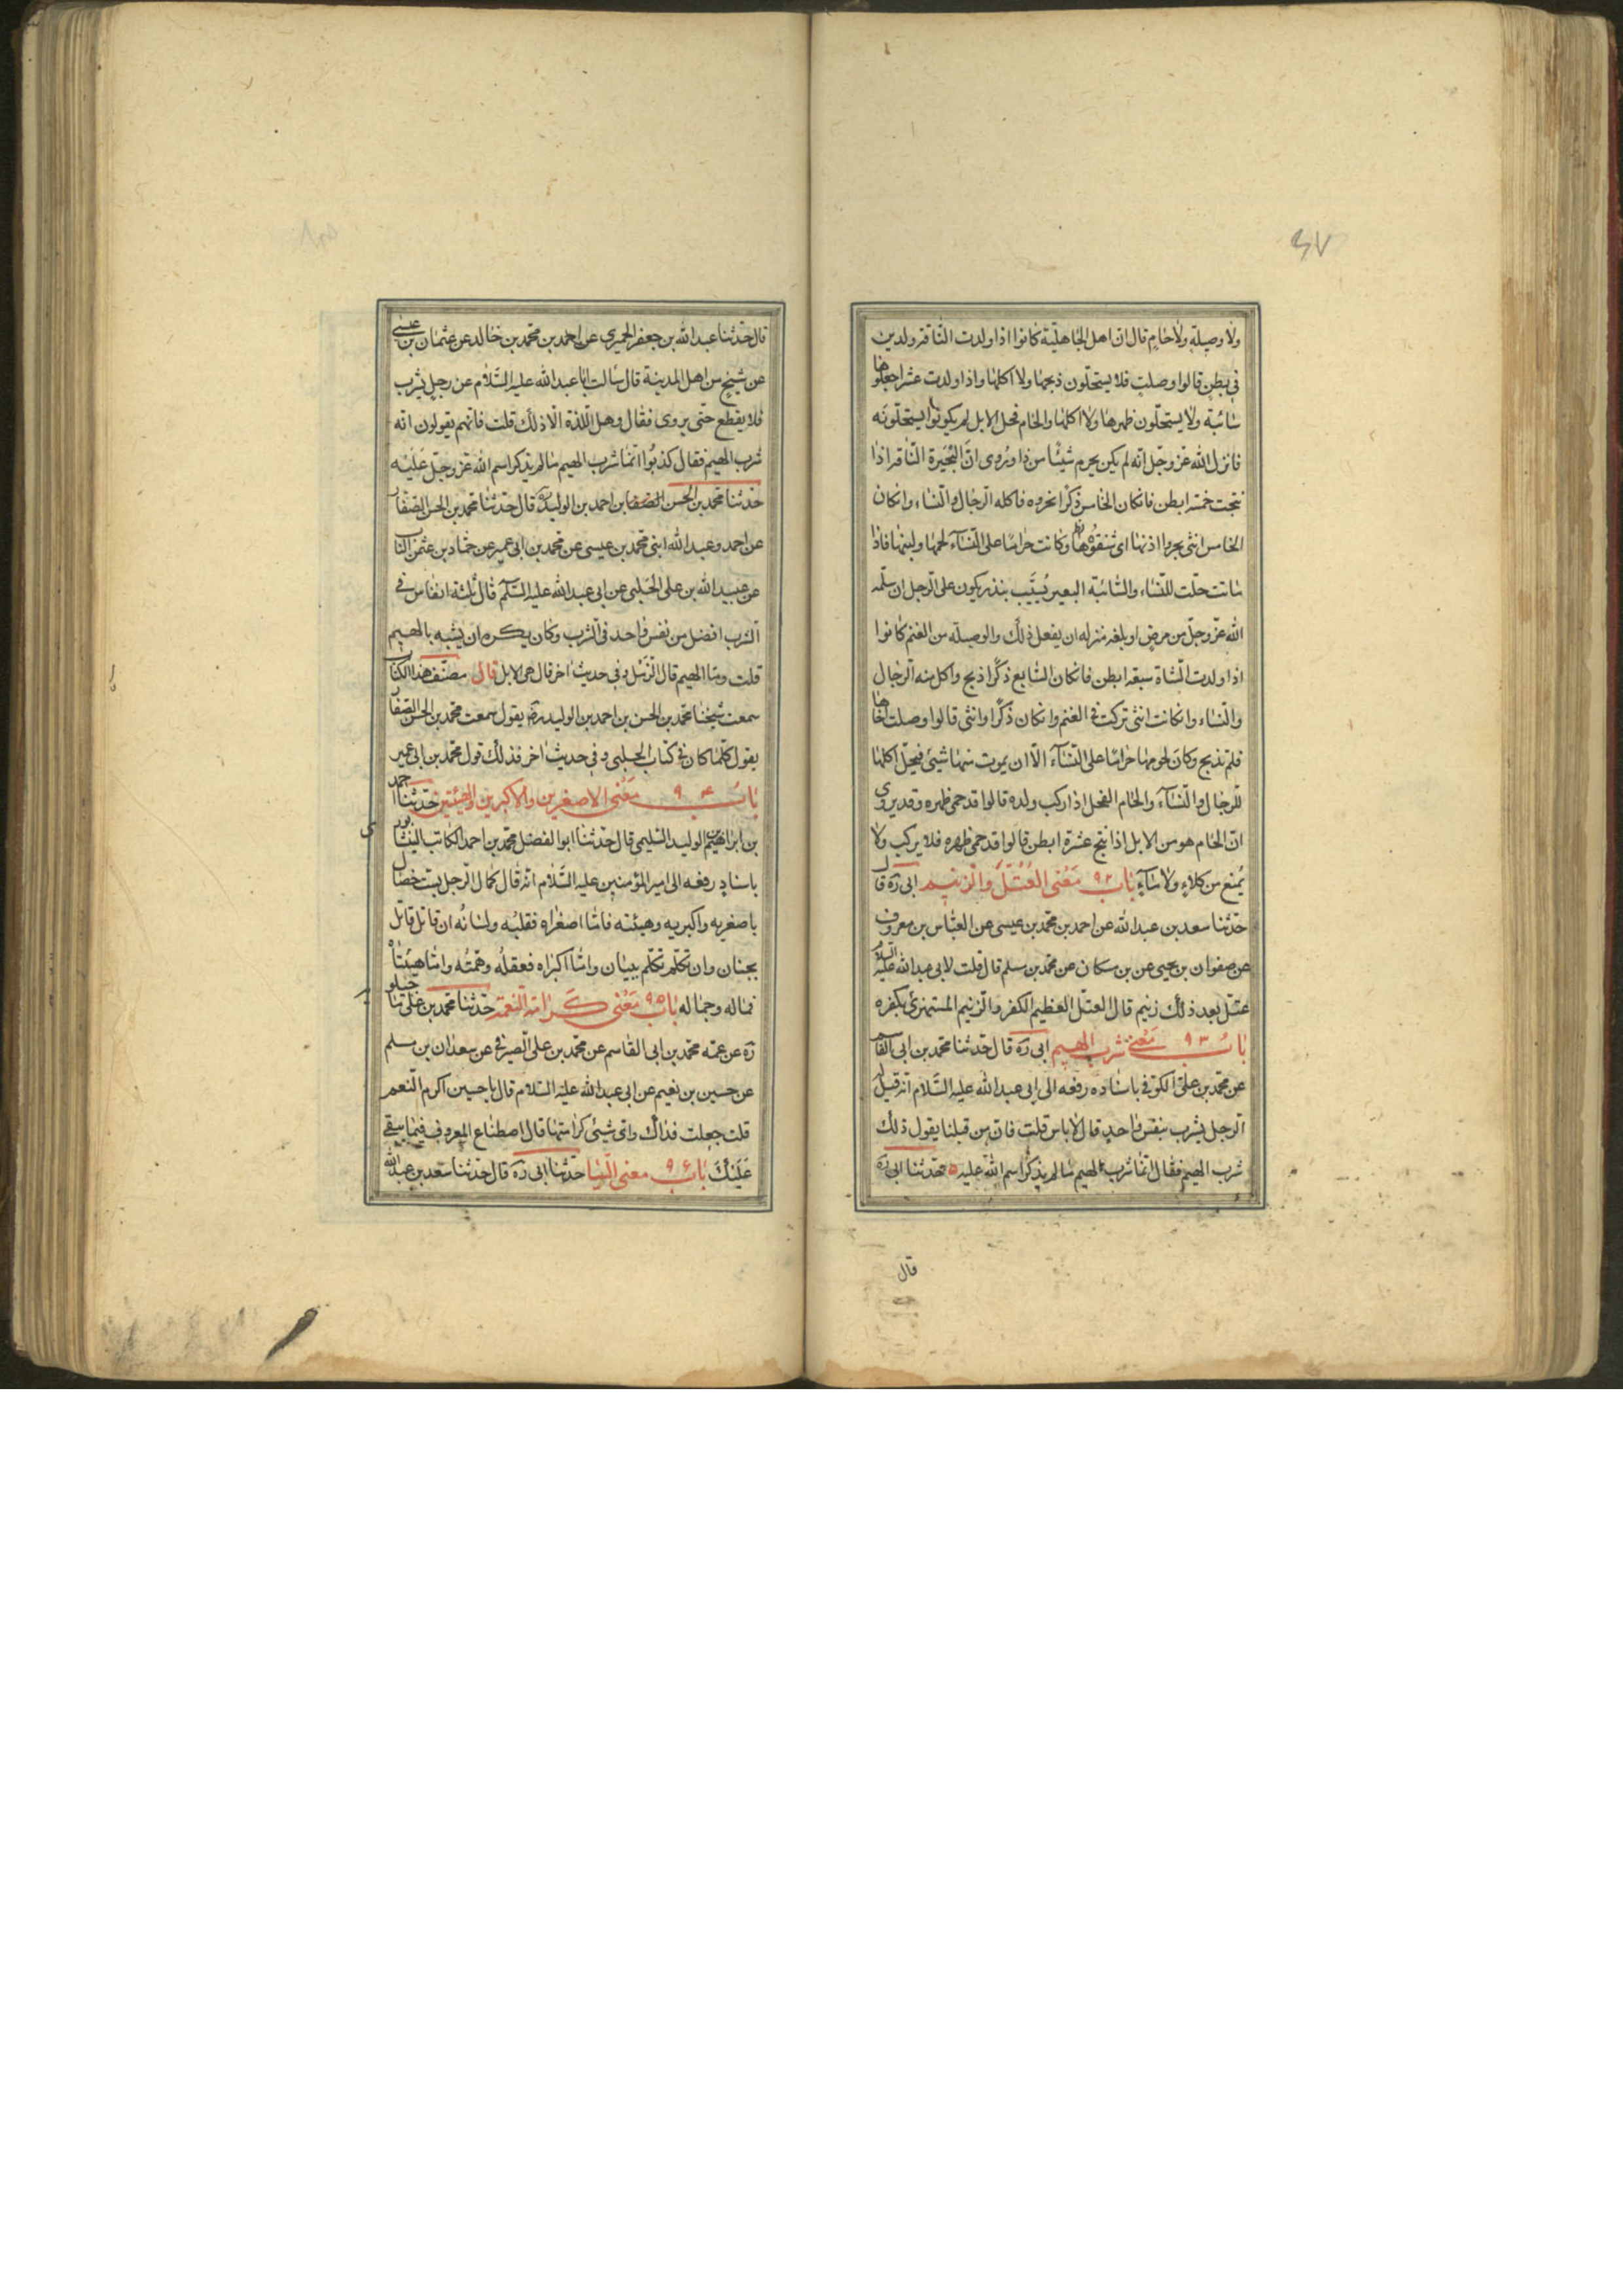 ٤٧
ولا وصيلة ولا حام قال ان اهل الجاهلية كانوا اذا ولدت الناقة ولدين
في بطن قالوا وصلت فلا يستحلّون ذبحها ولا اكلها واذا ولدت عشرا جعلوها
سائبة ولا يستحلّون ظهرها ولا اكلها والحام فحل الابل لم يكونوا يستحلّونه
فانزل الله عزّ وجلّ انه لم يكن يحرم شيئا من ذا ويُروى انّ البُحَيرة الناقة اذا
نتجت خمسة ابطن فانكان الخامس ذكرا نحروه فاكله الرجال والنساء وانكان
الخامس انثى بحروا اذنها اى شقوها وكانت حراما على النسآء لحمها ولبنها فاذا
ماتت حلّت للنساء والسّائبة البعير يُسَيّب بنذر يكون على الرجل ان سلّمه
الله عزّ وجلّ من مرض او بلغه منزله ان يفعل ذلك والوصيلة من الغنم كانوا
اذا ولدت الشاة سبعة ابطن فانكان السّابع ذكرا ذبح واكل منه الرجال
والنساء وانكانت انثى تركت في الغنم وانكان ذكرا وانثى قالوا وصلت اخاها
فلم تذبح وكان لحومها حراما على النسآء الّا ان يموت منها شيئ فيحلّ اكلها
للرجال والنسآء والحام الفحل اذا ركب ولده قالوا قد حمى ظهره وقد يروى
انّ الحام هو من الابل اذا نتج عشرة ابطن قالوا قد حمى ظهره فلا يركب ولا
يُمنع من كلاء ولا مآء باب ٩٢ مَعْنى العُتُلّ والزنيم ابى ره قال
حدّثنا سعد بن عبد الله عن احمد بن محمد بن عيسى عن العبّاس بن معروف
عن صفوان بن يحيى عن بن مسكان عن محمد بن مسلم قال قلت لابى عبد الله عليه السلام
عتلّ بعد ذلك زنيم قال العتلّ العظيم الكفر والزنيم المستهزئ بكفره
باب ٩٣ مَعْنى شرب الهيم ابى ره قال حدّثنا محمد بن ابى القاسم
عن محمد بن علىّ الكوفى باسناده رفعه الى ابى عبد الله عليه السّلام انّه قيل له
الرجل يشرب بنفس واحد قال لا باس قلت فانّ من قبلنا يقول ذلك
شرب الهيم فقال انّما شرب الهيم ما لم يذكر اسم الله عليه ٥ حدّثنا ابى ره
قال
قال حدّثنا عبد الله بن جعفر الحميرى عن احمد بن محمد بن خالد عن عثمان بن عيسى
عن شيخ من اهل المدينة قال سالت ابا عبد الله عليه السّلام عن رجل يشرب
فلا يقطع حتّى يروى فقال وهل اللّذة الّا ذلك قلت فانّهم يقولون انّه
شرب الهيم فقال كذبُوا انّما شرب الهيم ما لم يذكر اسم الله عزّ وجلّ عَلَيْه
حدّثنا محمد بن الحسن بن احمد بن الوليد ره قال حدّثنا محمد بن الحسن الصّفار
عن احمد وعبد الله ابنى محمد بن عيسى عن محمد بن ابى عمير عن حمّاد بن عثمن الناب
عن عبيد الله بن على الحَلبى عن ابى عبد الله عليه السّلم قال ثلثة انفاس فى
الشرب افضل من نفس واحد فى الشرب وكان يكره ان يشبه بالهيم
قلت وما الهيم قال الرّمل وفى حديث اخر قال هى الابل قال مصنّف هذا الكتاب
سمعت شيخنا محمد بن الحسن بن احمد بن الوليد رض يقول سمعت محمد بن الحسن الصّفار
يقول كلّما كان فى كتاب الحلبى وفى حديث اخر فذلك قول محمد بن ابى عمير
باب ٩٤ مَعْنى الاصغرين والاكبرين والهيئتين حدّثنا احمد
بن ابراهيم بن الوليد السّليمى قال حدّثنا ابو الفضل محمد بن احمد الكاتب النيشابورى
باسناد رفعه الى امير المؤمنين عليه السّلام انّه قال كمال الرّجل بستّ خصال
باصغريه واكبريه وهيئته فامّا اصغراه فقلبُه ولسانُه ان قاتل قاتل
بجنان وان تكلّم تكلّم ببيان وامّا اكبراه فعقلُه وهمّتُه وامّا هيئتاه
فماله وجماله باب ٩٥ مَعْنى كَرامة النعمة حدّثنا محمد بن على ماجيلويه
ره عن عمّه محمد بن ابى القاسم عن محمد بن على الصيرفى عن سعدان بن مسلم
عن حسين بن نعيم عن ابى عبد الله عليه السّلام قال يا حسين اكرم النّعم
قلت جعلت فداك واى شيئ كرامتها قال اصطناع المعروف فيما يبقى
عَلَيْكَ باب ٩٦ معنى الرّيا حدّثنا ابى ره قال حدّثنا سعد بن عبد الله